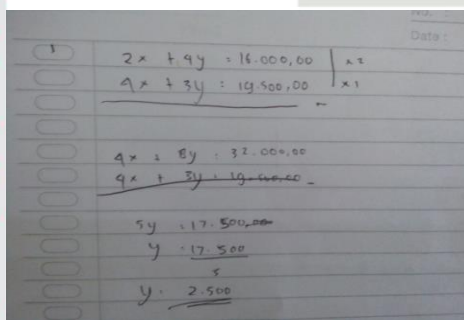 Date :
1
2x + 4y = 16.000,00 | x2
4x + 3y : 19.500,00 | x1
4x + 8y : 32.000,00
4x + 3y : 19.500,00 -
5y : 17.500,00
y : 17.500
5
y : 2.500